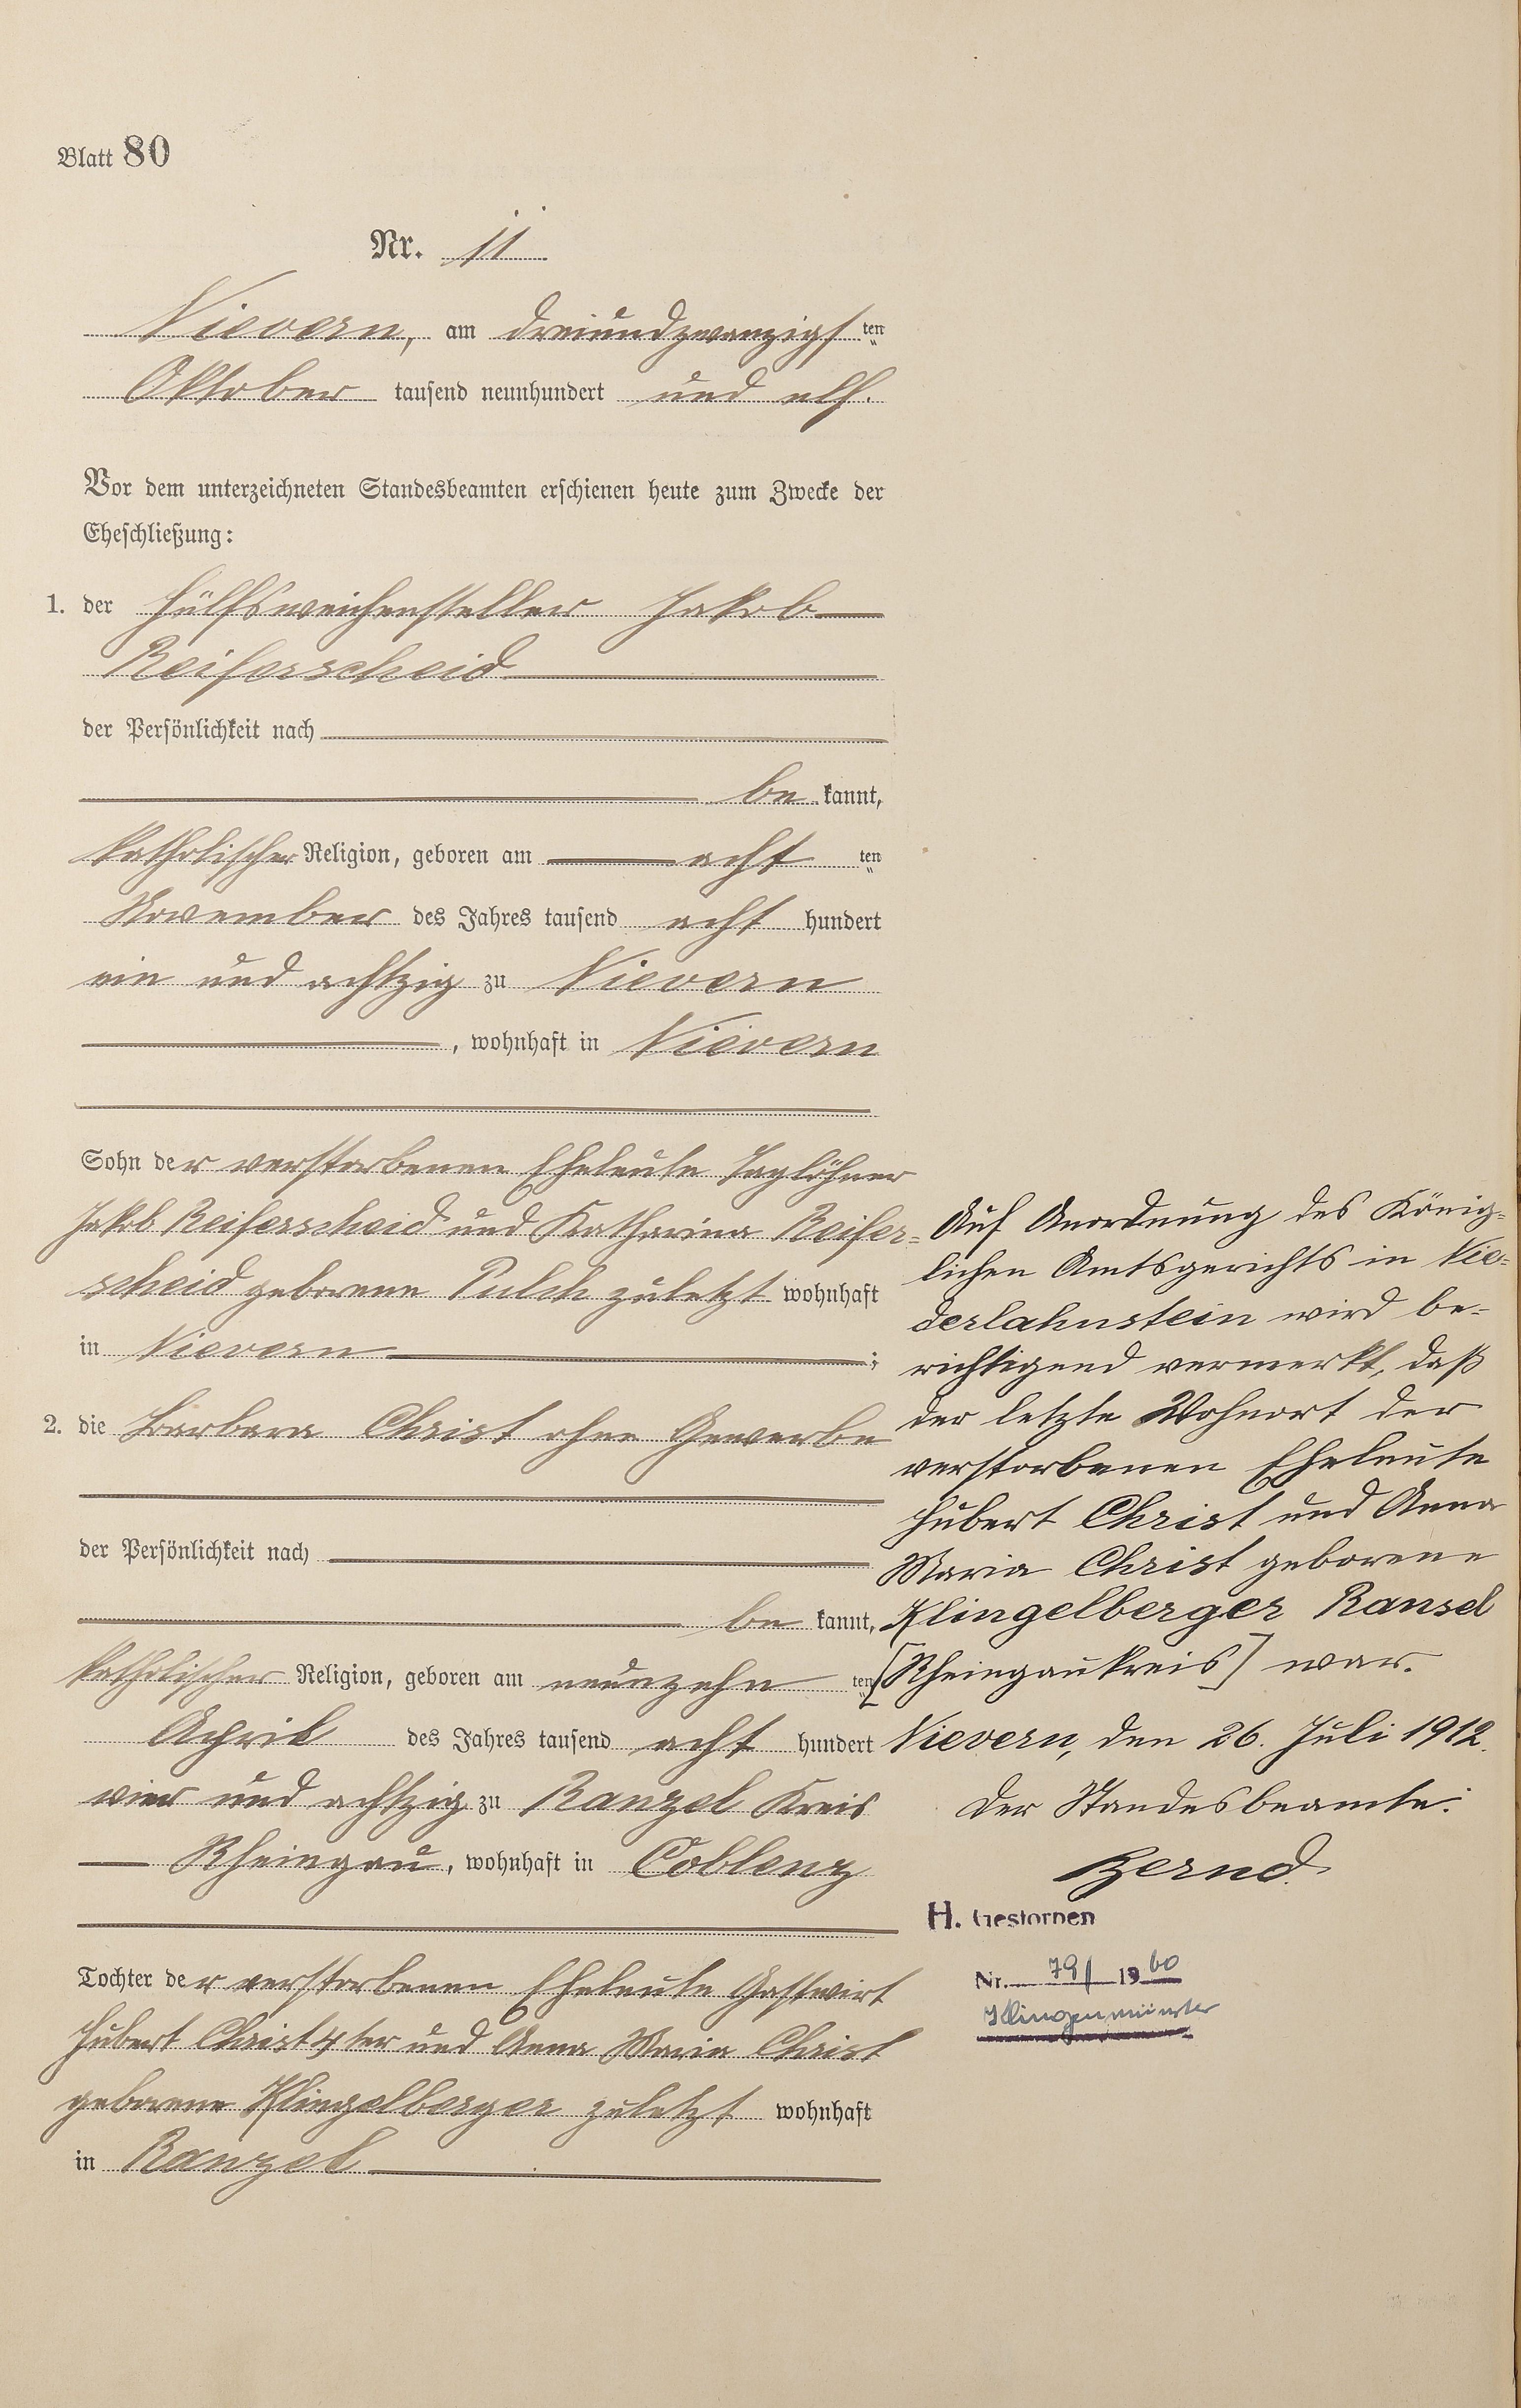 Blatt 80
Nr. 11
Nievern, am dreiundzwanzigsten
Oktober tausend neunhundert und elf.
Vor dem unterzeichneten Standesbeamten erschienen heute zum Zwecke der
Eheschließung:
1. der Hülfsweichensteller Jakob
Reiferscheid
der Persönlichkeit nach
bekannt,
katholischer Religion, geboren am achten
November des Jahres tausend acht hundert
ein und achtzig zu Nievern
, wohnhaft in Nievern
Sohn der verstorbenen Eheleute Taglöhner
Jakob Reiferscheid und Katharina Reifer=
scheid geborene Pulch zuletzt wohnhaft
in Nievern ;
2. die Barbara Christ ohne Gewerbe
der Persönlichkeit nach
bekannt,
katholischer Religion, geboren am neunzehnten
April des Jahres tausend acht hundert
vier und achtzig zu Ranzel Kreis
Rheingau, wohnhaft in Coblenz
Tochter der verstorbenen Eheleute Gastwirt
Hubert Christ 4ter und Anna Maria Christ
geborene Klingelberger zuletzt wohnhaft
in Ranzel
Auf Anordnung des König=
lichen Amtsgerichts in Nie=
derlahnstein wird be=
richtigend vermerkt, daß
der letzte Wohnort der
verstorbenen Eheleute
Hubert Christ und Anna
Maria Christ geborene
Klingelberger Ransel
[Rheingaukreis] war.
Nievern, den 26. Juli 1912.
Der Standesbeamte:
Bernd.
H. Gestorben
Nr. 791 1960
Klingenmünster